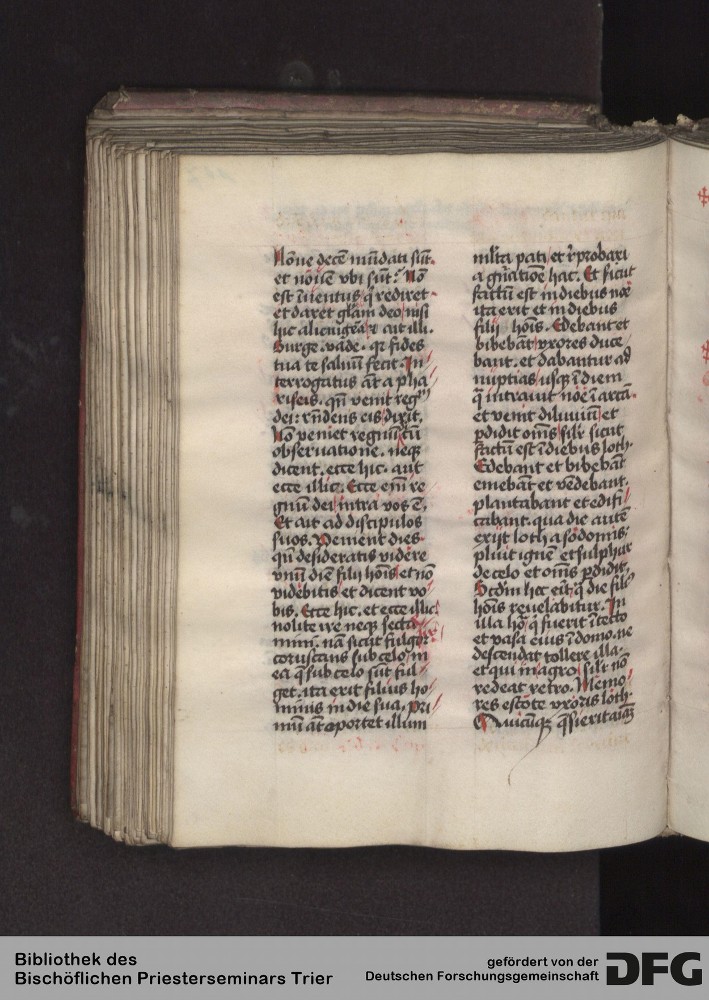 Nōne decē mūdati sūt.
et nouē vbi sūt? Nō
est īuentus q̄ rediret
et daret glām deo nisi
hic alienigena et ait illi.
Surge vade. qr fides
tua te saluū fecit. In
terrogatus āt a pha
riseis. qn̄ venit regnū
dei: rn̄dens eis dixit.
Nō veniet regnū cū
obseruatione. neqꝫ
dicent. ecce hic. aut
ecce illic. Ecce em̄ re
gnū dei intra vos ē.
Et ait ad discipulos
suos. Venient dies
qn̄ desideratis videre
vnū diē filii hōis et nō
videbitis et dicent vo
bis. Ecce hic. et ecce illic.
nolite ire neqꝫ secta
mini. nā sicut fulgor
coruscans sub celo in
ea q̄ sub celo sūt ful
get. ita erit filius ho
minis in die sua. Pri
mū āt oportet illum
mlta pati et rprobari
a gn̄atione hac. Et sicut
factū est in diebus noe
ita erit et in diebus
filij hōis. Edebant et
bibebāt vxores duce
bant. et dabantur ad
nuptias vsqꝫ ī diem
q̄ intrauit noe ī arcā.
et venit diluuiū et
pdidit om̄s silr sicut
factū est ī diebus loth.
Edebant et bibebāt
emebāt et vēdebant.
plantabant et edifi
cabant. qua die autē
exijt loth a sodomis.
pluit ignē et sulphur
de celo et om̄s pdidit.
Scdm hec erit q̄ die filiꝰ
hōis reuelabitur. In
illa hōa q̄ fuerit ī tecto
et vasa eius ī domo. ne
descendat tollere illa.
et qui in agro silr nō
redeat retro. Memo
res estote vxoris loth.
Quicūqꝫ q̄sierit aīaꝫ
Bibliothek des
Bischöflichen Priesterseminars Trier
gefördert von der
Deutschen Forschungsgemeinschaft
DFG